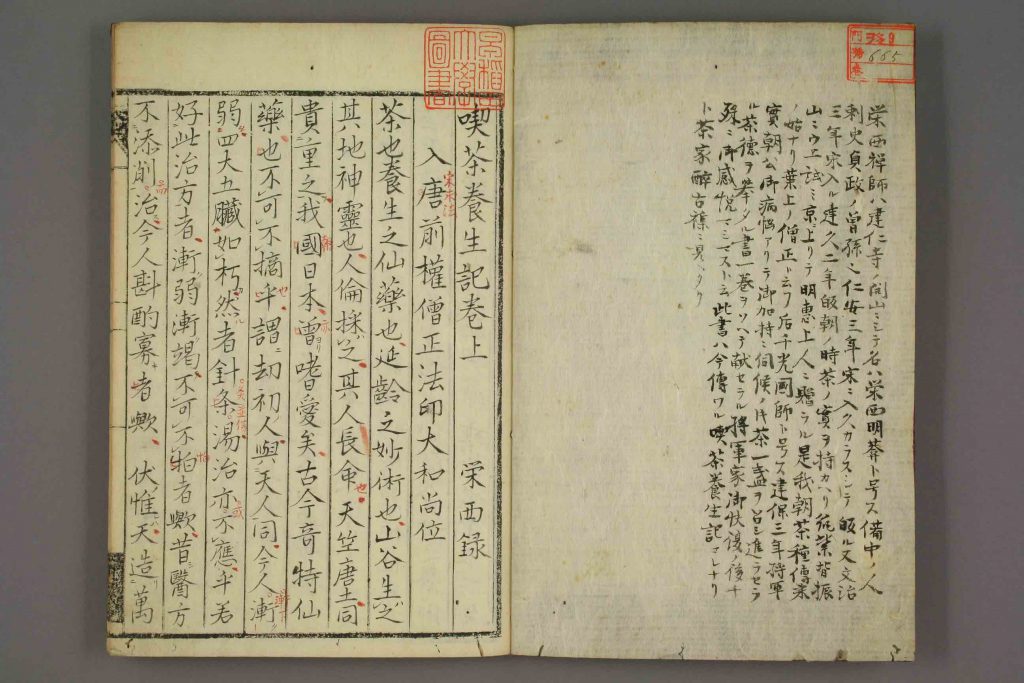 栄西禅師ハ建仁寺ノ開山ニシテ名ハ栄西明菴ト号ス備中ノ人
刺史貞政ノ曽孫ニ仁安三年宋ニ入久カラスシテ皈ル又文治
三年宋入ル建久二年皈朝ノ時茶ノ實ヲ持カハリ筑紫背振
山ミウエ試ミ京ニ上リテ明恵上人ニ贈ラル是我朝茶種傳来
ノ始ナリ葉上ノ僧正ト云フ后千光國師ト号ス建保三年将軍
實朝公御病悩アリテ御加持ニ伺候ノ茶一盞ヲ召シ進ラセラ
ル茶德ヲ挙タル書一巻ヲソヘテ献セラル将軍家御快復ノ後
殊ニ御感悦マシマスト云此書ハ今傳ワル喫茶養生記コレナリ
ト茶家酔古襍ニ見ヘタリ
喫茶養生記巻上 栄西録
入唐前權僧正法印大和尚位
茶也養生之仙藥也延齡之妙術也山谷生之
其地神靈也人倫採之其人長命也天竺唐土同
貴重之我國日本曽嗜愛矣古今奇特仙
藥也不可不摘乎謂劫初人與天人同今人漸
弱四大五臟如朽然者針灸湯治亦不應乎若
好此治方者漸弱漸竭不可不怕者歟昔醫方
不添削治今人斟酌寡者歟 伏惟天造萬